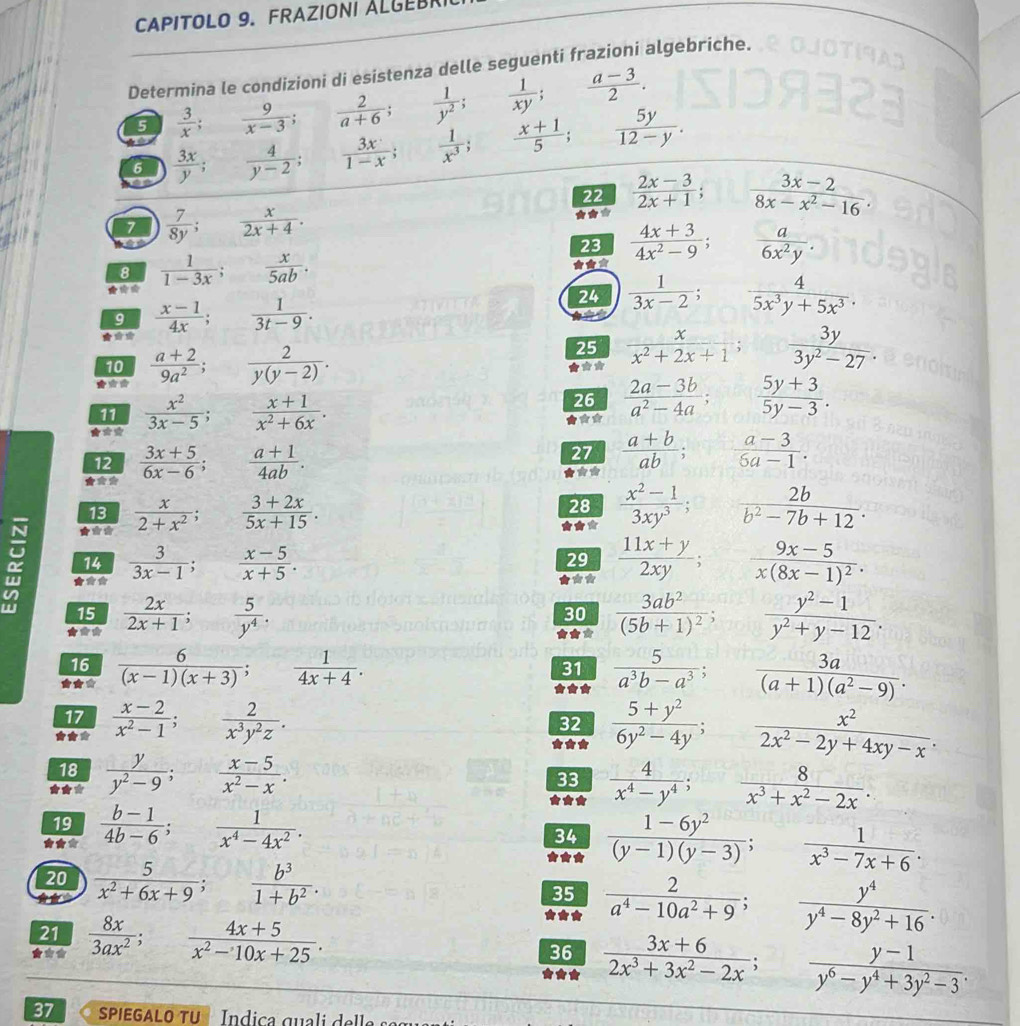 CAPITOLO 9. FRAZIONI
Determina le condizioni di esistenza delle seguenti frazioni algebriche.
5 3/x; 9/(x − 3); 2/(a + 6); 1/y²; 1/(xy); (a − 3)/2.
6 3x/y; 4/(y − 2); 3x/(1 − x); 1/x³; (x + 1)/5; 5y/(12 − y).
7 7/(8y); x/(2x + 4).
8 1/(1 − 3x); x/(5ab).
9 (x − 1)/(4x); 1/(3t − 9).
10 (a + 2)/(9a²); 2/(y(y − 2)).
11 x²/(3x − 5); (x + 1)/(x² + 6x).
12 (3x + 5)/(6x − 6); (a + 1)/(4ab).
13 x/(2 + x²); (3 + 2x)/(5x + 15).
14 3/(3x − 1); (x − 5)/(x + 5).
15 2x/(2x + 1); 5/y⁴.
16 6/((x − 1)(x + 3)); 1/(4x + 4).
17 (x − 2)/(x² − 1); 2/(x³y²z).
18 y/(y² − 9); (x − 5)/(x² − x).
19 (b − 1)/(4b − 6); 1/(x⁴ − 4x²).
20 5/(x² + 6x + 9); b³/(1 + b²).
21 8x/(3ax²); (4x + 5)/(x² − 10x + 25).
22 (2x − 3)/(2x + 1); (3x − 2)/(8x − x² − 16).
23 (4x + 3)/(4x² − 9); a/(6x²y).
24 1/(3x − 2); 4/(5x³y + 5x³).
25 x/(x² + 2x + 1); 3y/(3y² − 27).
26 (2a − 3b)/(a² − 4a); (5y + 3)/(5y − 3).
27 (a + b)/(ab); (a − 3)/(6a − 1).
28 (x² − 1)/(3xy³); 2b/(b² − 7b + 12).
29 (11x + y)/(2xy); (9x − 5)/(x(8x − 1)²).
30 3ab²/(5b + 1)²; (y² − 1)/(y² + y − 12).
31 5/(a³b − a³); 3a/((a + 1)(a² − 9)).
32 (5 + y²)/(6y² − 4y); x²/(2x² − 2y + 4xy − x).
33 4/(x⁴ − y⁴); 8/(x³ + x² − 2x).
34 (1 − 6y²)/((y − 1)(y − 3)); 1/(x³ − 7x + 6).
35 2/(a⁴ − 10a² + 9); y⁴/(y⁴ − 8y² + 16).
36 (3x + 6)/(2x³ + 3x² − 2x); (y − 1)/(y⁶ − y⁴ + 3y² − 3).
ESERCIZI
37 SPIEGALO TU Indica quali